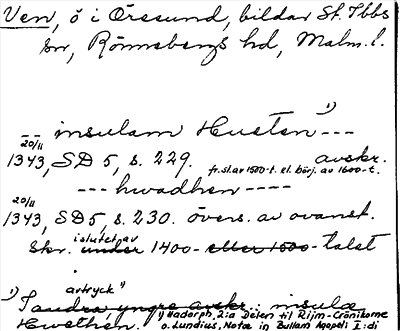 Ven, ö i Öresund, bildar St. Ibbs
sn, Rönnebergs hd, Malm. l.
-- insulam Huesten ---¹⁾
20/11
1343, SD 5, s. 229. avskr.
fr. sl. av 1500-t. el. börj. av 1600-t.
--- hwadhen ----
20/11
1343, SD 5, s. 230. övers. av ovanst.
i slutet av
skr. under 1400- eller 1500-talet
.
avtryck"
¹⁾ Tandra, yngre avskr.: insulæ
Hwethen. ¹⁾ Hadorph, 2:a Delen til Rijm-Crönikorne
o. Lundius, Notæ in Bullam Agapeti I:di